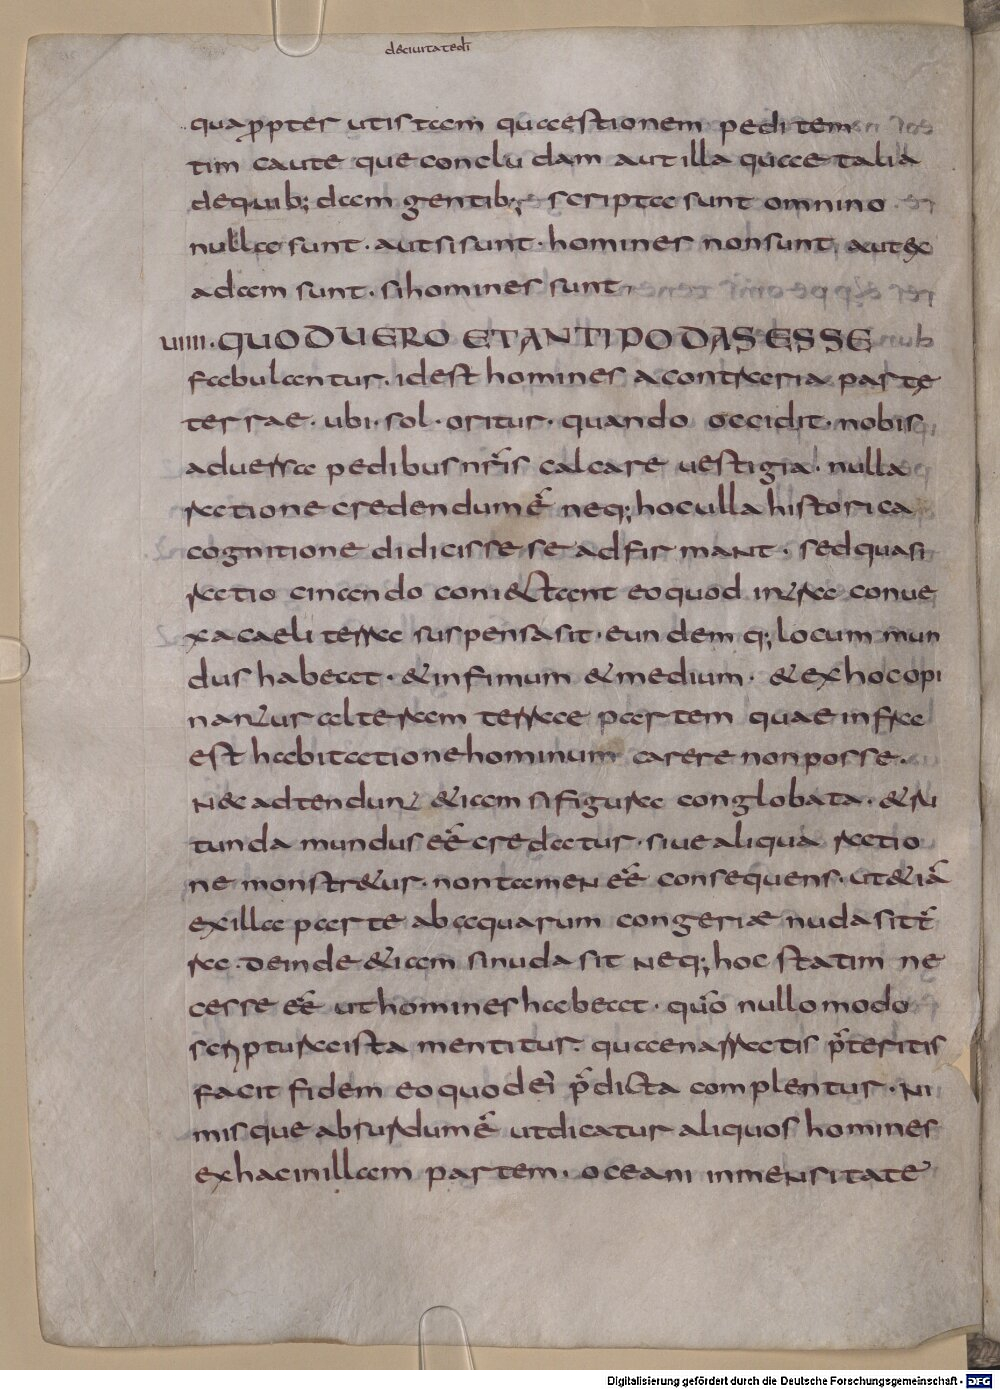 deciuitatedī
quapropter utistam quaestionem peditem
tim caute que conclu dam aut illa quae talia
dequib; dam gentib; scriptae sunt omnino
nullae sunt · aut si sunt · homines non sunt, aut ex
adam sunt · si homines sunt
VIIII · QUOD UERO ET ANTIPODAS ESSE
fabulantur · id est homines a contraria parte
terrae · ubi · sol · oritur · quando occidit · nobis
aduersa pedibus nr̄is calcare uestigia · nulla
ratione credendum ē neq; hoc ulla historica
cognitione didicisse se adfirmant · sed quasi
ratio cinando coniectant eo quod intra conue
xa caeli terra suspensa sit · eundem q; locum mun
dus habeat · & infimum & medium · & ex hoc opi
nantur alteram terrae partem quae infra
est habitatione hominum carere non posse ·
Nec adtendunt & iam si figura conglobata · & ru
tunda mundus eē credatur · siue aliqua ratio
ne monstr&ur · non tamen eē consequens · ut & iā
ex illa parte ab aquarum congeriae nuda sit t̄
ra · deinde & iam si nuda sit neq; hoc statim ne
cesse eē ut homines habeat · quō nullo modo
scriptura ista mentitur · quae narratis p̄teritis
facit fidem eo quod ei p̄dicta complentur · Ni
mis que absurdum ē ut dicatur aliquos homines
ex hac in illam partem · oceani inmensitate
Digitalisierung gefördert durch die Deutsche Forschungsgemeinschaft · DFG